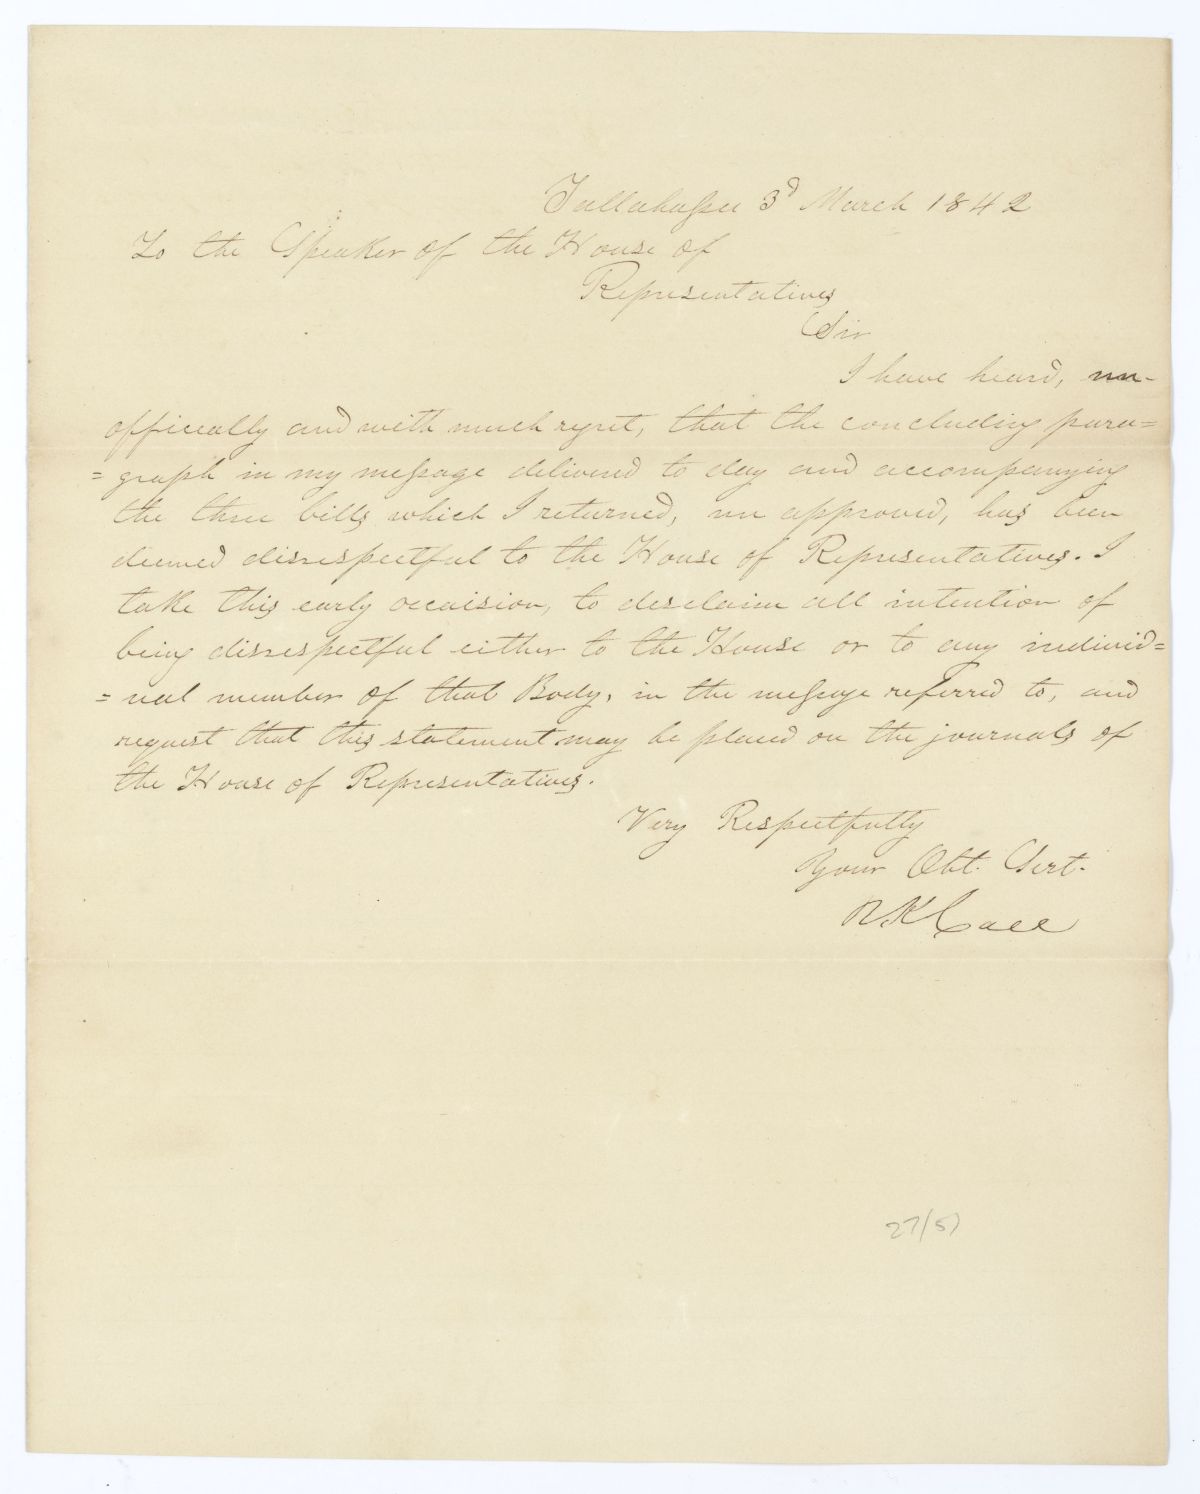 Tallahassee 3d March 1842
To the Speaker of the House of
Representatives
Sir
I have heard, un-
officeally and with much regret, that the concluding para=
=graph in my message delivered to day and accompanying
the three bills which I returned, un approved, has been
deemed disrespectful to the House of Representatives. I
take this early occaision, to desclaim all intention of
being disrespectful either to the House or to any individ=
=ual member of that Body, in the message referred to, and
request that this statement may be placed on the journals of
the House of Representatives.
Very Respectfully
Your Obt. Sert.
R K Call
27/5)